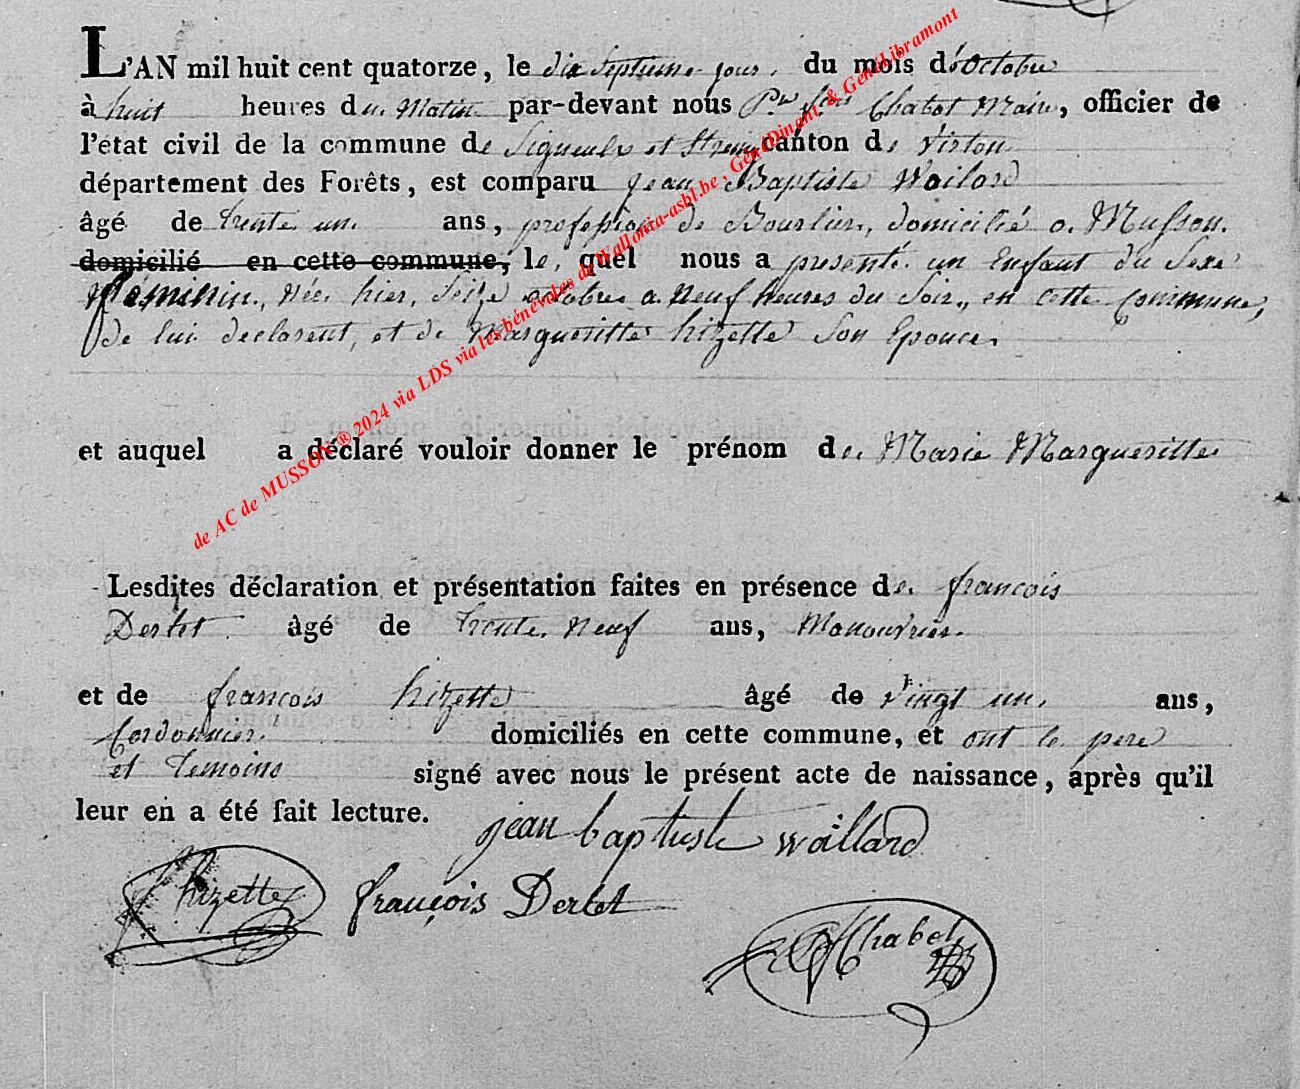 L'AN mil huit cent quatorze, le dix septieme jour, du mois d'octobre
à huit heures du Matin par-devant nous Pre fois Chabot Maire, officier de
l'état civil de la commune de Signeulx et St remy canton de Virton
département des Forêts, est comparu Jean Baptiste Woilard
âgé de trente un ans, profession de Bourlier, domicilié a Musson.
domicilié en cette commune, le quel nous a presenté un Enfant du Sexe
féminin, Née hier, Seize octobre a Neuf heures du Soir, en cette Commune,
de lui declarent, et de Margueritte hizette Son Epouce.
et auquel a déclaré vouloir donner le prénom de Marie Marguesitte
Lesdites déclaration et présentation faites en présence de françois
Derlet âgé de trente Neuf ans, Manouvrier.
et de françois hizette âgé de Vingt un ans,
Cordonnier. domiciliés en cette commune, et ont le pere
et temoins signé avec nous le présent acte de naissance, après qu'il
leur en a été fait lecture.
jean baptiste woillard
hizette françois Derlet
Chabot
de AC de MUSSON ® 2024 via LDS via les bénévoles de Wallonia-asbl.be , GénéDinant & GénéLibramont